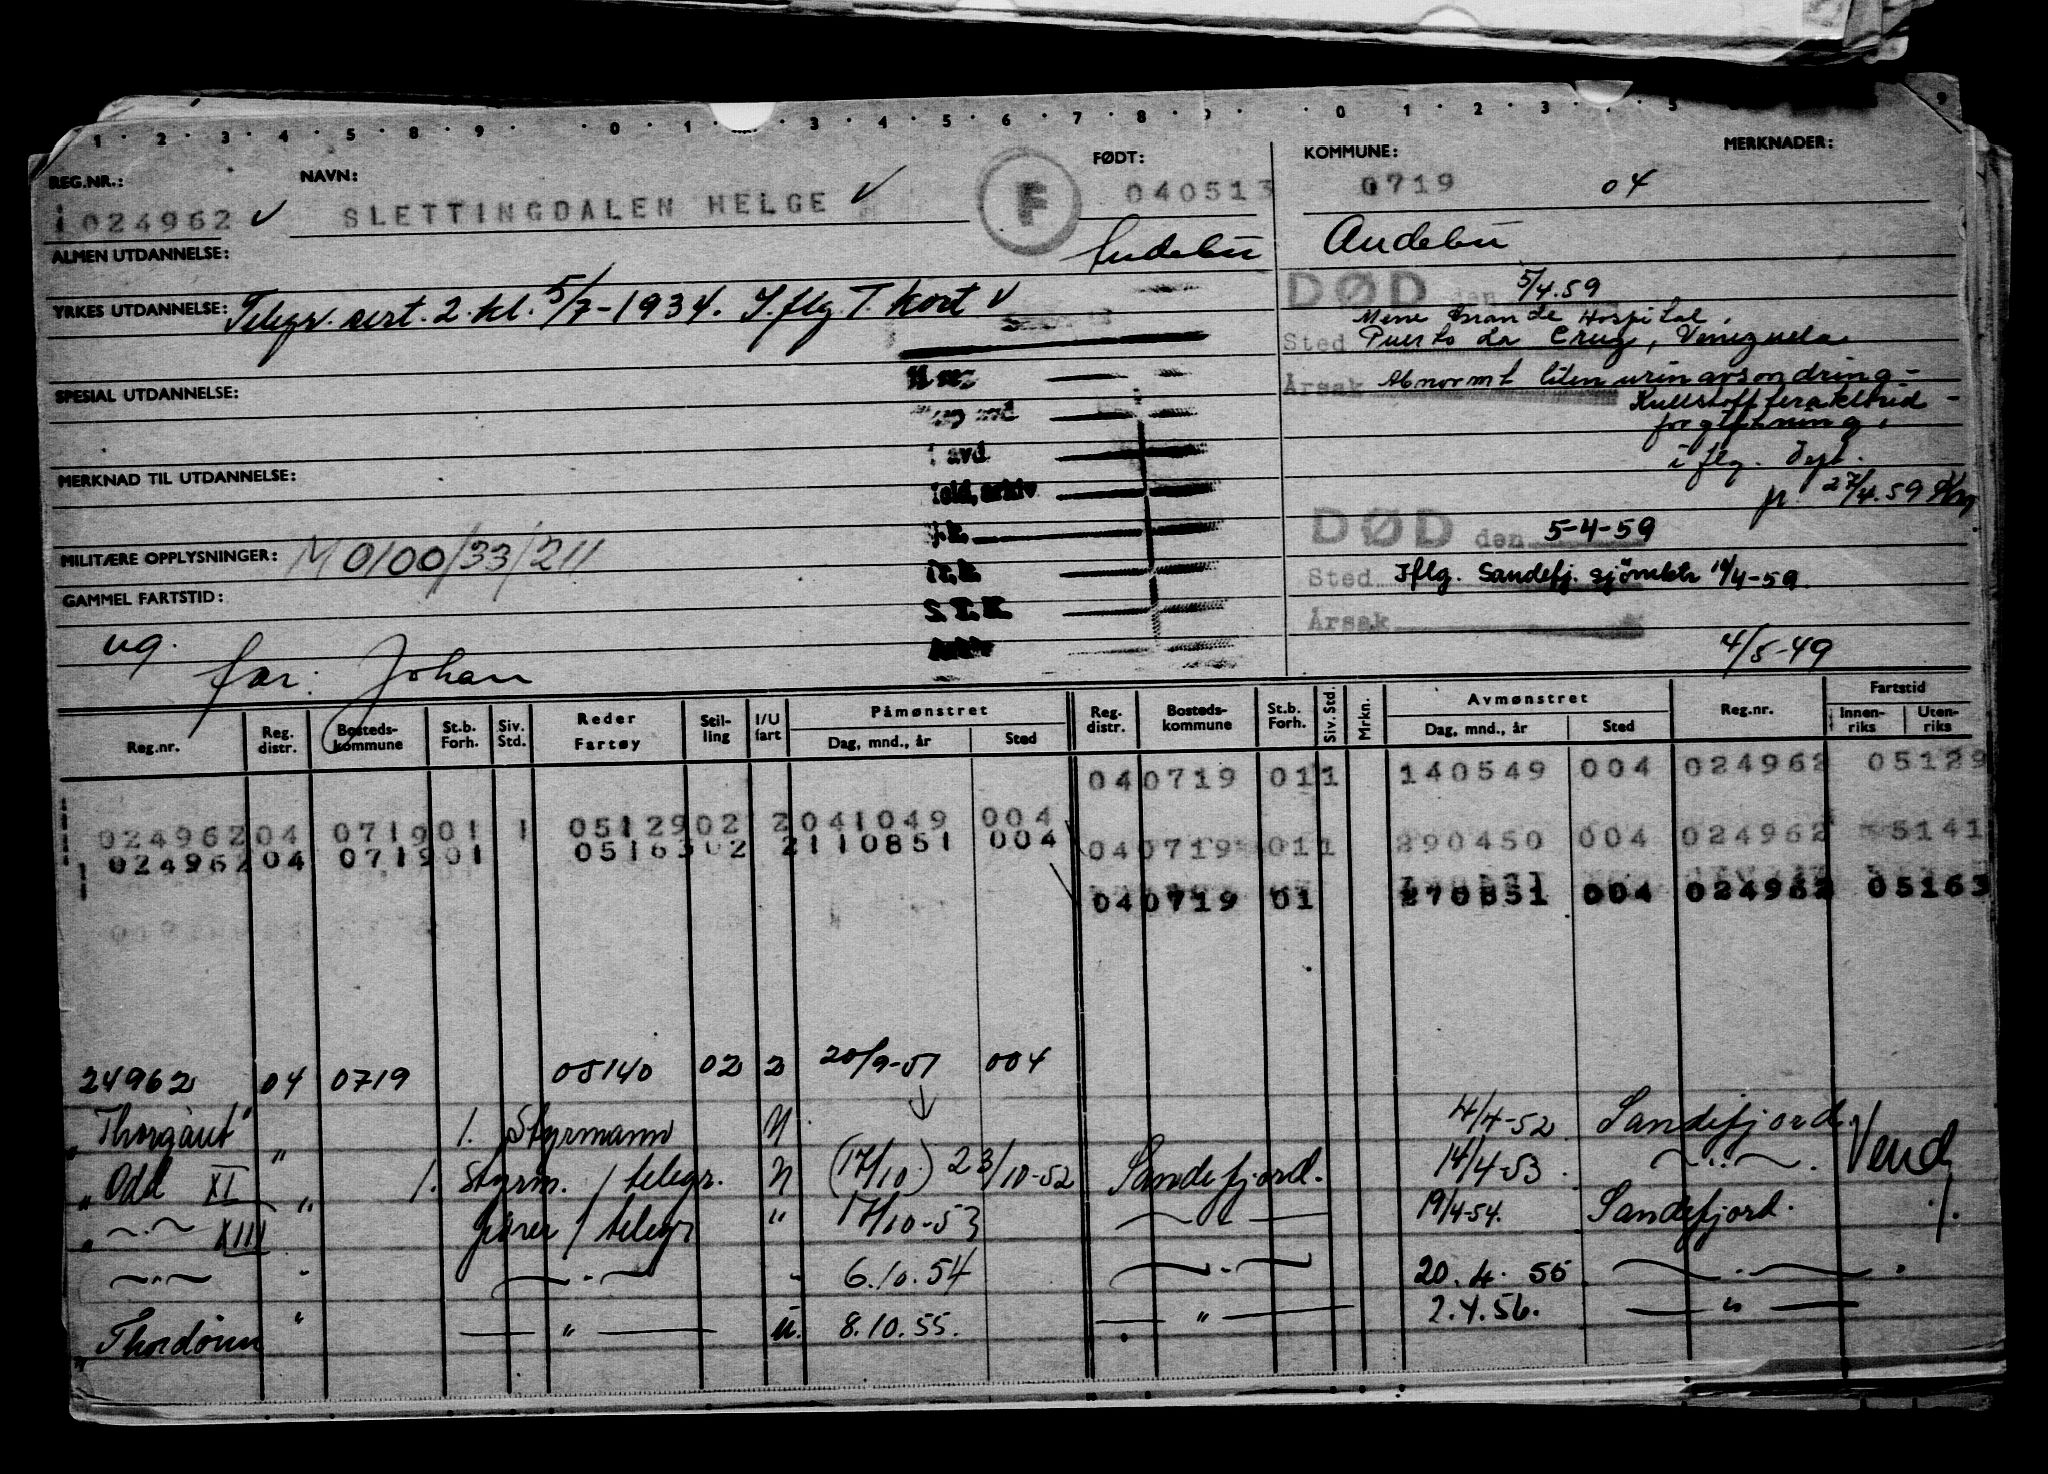 REG.NR.: NAVN: FØDT: KOMMUNE: MERKNADER:
024962 SLETTINGDALEN HELGE F 040513 0719 04
Andebu Andebu
ALMEN UTDANNELSE:
YRKES UTDANNELSE: Telegr. sert. 2. kl. 5/7-1934. I. flg T. kort
SPESIAL UTDANNELSE:
MERKNAD TIL UTDANNELSE:
MILITÆRE OPPLYSNINGER: M 0100/33/211
GAMMEL FARTSTID:
ug.
far: Johan
avd.
S.T.K
DØD den 5/4.59
Mene Grande Hospital,
Sted Puerto La Cruz, Venezuela
Årsak Abnormt liten urinavsondring -
Kullstofftetraklorid -
forgiftning,
i flg. Dept.
27/4.59
DØD den 5-4-59
Sted Iflg. Sandefj. sjömktr 14/4-59
Årsak
4/5-49
Reg.nr. Reg. distr. Bosteds- kommune St.b. Forh. Siv. Std. Reder Fartøy Stil- ling I/U fart Påmønstret Dag, mnd., år Sted Reg. distr. Bosteds- kommune St.b. Forh. Siv. Std. Mrkn. Avmønstret Dag, mnd., år Sted Reg.nr. Fartstid Innen- riks Uten- riks
04 0719 01 1 140549 004 024962 05129
024962 04 0719 01 1 05129 02 2 041049 004
04 0719 01 1 290450 004 024962 05141
024962 04 0719 01 05163 02 2 110851 004
04 0719 01 270851 004 024962 05163
24962 04 0719 05140 02 2 20/9-51 004
"Thorgaut" " 1. Styrmann U 4/4-52 Sandefjord.
"Odd XI " 1. Styrm. / telegr. N (17/10) 23/10-52 Sandefjord. 14/4-53 — " — . Vend
" — " — XIII / telegr " 17/10-53 — " — 19/4-54. Sandefjord. ./.
— " — " — " — " 6.10.54 — " — 20.4.55 — " —
"Thordönn " — " — u. 8.10.55. — " — 2.4.56. — " —